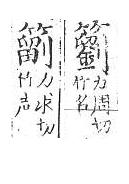 力周切
竹名
力求切
竹声